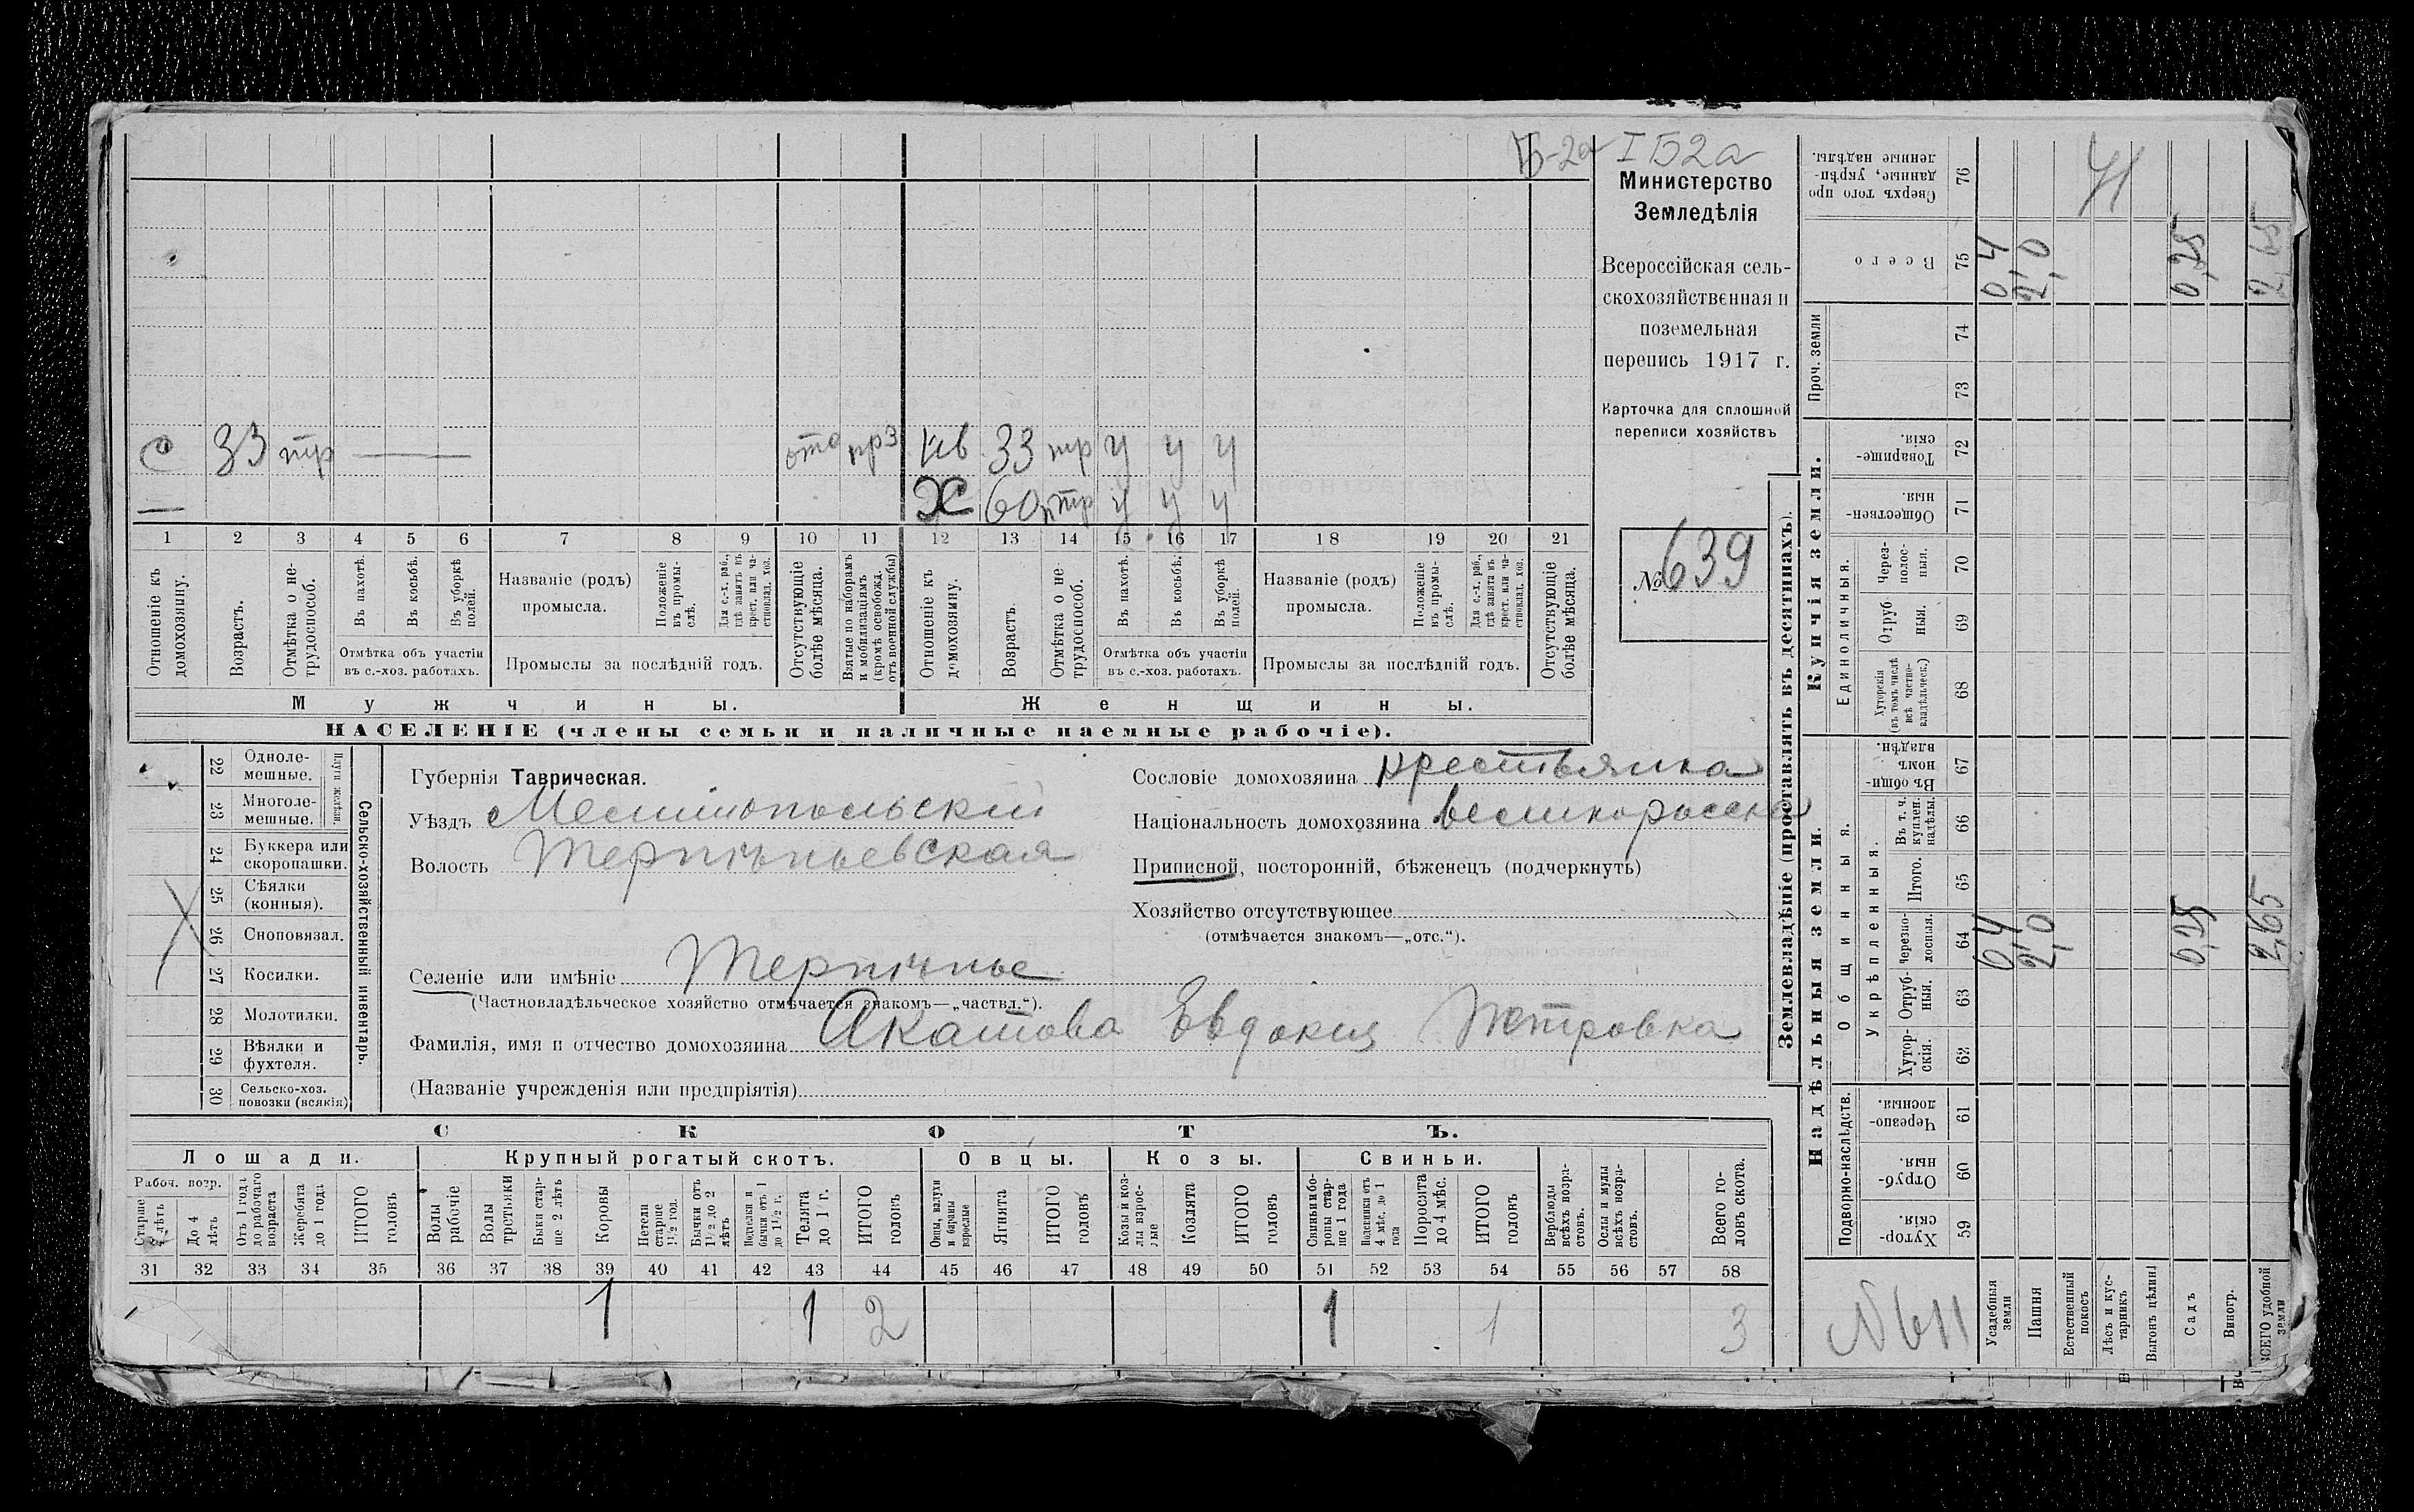 Б-2а
І Б2а
Министерство
Земледѣлія
Всероссійская сель-
скохозяйственная и
поземельная
перепись 1917 г.
Карточка для сплошной
переписи хозяйствъ
№ 639
с 33 тр — отс прз нв 33 тр у у у
— Х 60 птр у у у
1 2 3 4 5 6 7 8 9 10 11 12 13 14 15 16 17 18 19 20 21
Отношеніе къ домохозяину.
Возрастъ.
Отмѣтка о не-трудоспособ.
Въ пахотѣ.
Въ косьбѣ.
Въ уборкѣ полей.
Отмѣтка объ участіи
въ с.-хоз. работахъ.
Названіе (родъ)
промысла.
Положеніе въ промы-слѣ.
Для с.-х. раб., гдѣ занятъ въ крест. или ча-стновлад. хоз.
Промыслы за послѣдній годъ.
Отсутствующіе болѣе мѣсяца.
Взятые по наборамъ и мобилизаціямъ (кромѣ освобожд. отъ военной службы)
Отношеніе къ домохозяину.
Возрастъ.
Отмѣтка о не-трудоспособ.
Въ пахотѣ.
Въ косьбѣ.
Въ уборкѣ полей.
Отмѣтка объ участіи
въ с.-хоз. работахъ.
Названіе (родъ)
промысла.
Положеніе въ промы-слѣ.
Для с.-х. раб., гдѣ занята въ крест. или ча-стновлад. хоз.
Промыслы за послѣдній годъ.
Отсутствующіе болѣе мѣсяца.
Мужчины.
Женщины.
НАСЕЛЕНІЕ (члены семьи и наличные наемные рабочіе).
22 Одноле-мешные.
23 Многоле-мешные.
Плуги желѣзн.
24 Буккера или скоропашки.
25 Сѣялки (конныя).
26 Сноповязал.
27 Косилки.
28 Молотилки.
29 Вѣялки и фухтеля.
30 Сельско-хоз. повозки (всякія)
Сельско-хозяйственный инвентарь.
Губернія Таврическая.
Уѣздъ Мелитопольскій
Волость Терпѣньевская
Селеніе или имѣніе Терпѣнье
(Частновладѣльческое хозяйство отмѣчается знакомъ—„частвл.“).
Фамилія, имя и отчество домохозяина Акатова Евдокия Петровна
(Названіе учрежденія или предпріятія)
Сословіе домохозяина крестьянка
Національность домохозяина великоросска
Приписной, посторонній, бѣженецъ (подчеркнуть)
Хозяйство отсутствующее
(отмѣчается знакомъ—„отс.“).
СКОТЪ.
Лошади.
Крупный рогатый скотъ.
Овцы.
Козы.
Свиньи.
Рабоч. возр.
Старше 4 лѣтъ
До 4 лѣтъ
Отъ 1 года до рабочаго возраста
Жеребята до 1 года
ИТОГО головъ
Волы рабочіе
Волы третьяки
Быки стар-ше 2 лѣтъ
Коровы
Нетели старше 1½ года.
Бычки отъ 1½ до 2 лѣтъ
Нетелки и бычки отъ 1 до 1½ г.
Телята до 1 г.
ИТОГО головъ
Овцы, валухи и бараны взрослые
Ягнята
ИТОГО головъ
Козы и коз-лы взрос-лые
Козлята
ИТОГО головъ
Свиньи и бо-ровы стар-ше 1 года
Подсвинки отъ 4 мѣс. до 1 года
Поросята до 4 мѣс.
ИТОГО головъ
Верблюды всѣхъ возра-стовъ.
Ослы и мулы всѣхъ возра-стовъ.
Всего го-ловъ скота.
31 32 33 34 35 36 37 38 39 40 41 42 43 44 45 46 47 48 49 50 51 52 53 54 55 56 57 58
1 1 2 1 1 3
Землевладѣніе (проставлять въ десятинахъ).
Надѣльныя земли.
Купчія земли.
Подворно-наслѣдств.
Общинныя.
Укрѣпленныя.
Единоличныя.
Проч. земли
Хутор-скія. 59
Отруб-ныя. 60
Черезпо-лосныя. 61
Хутор-скія. 62
Отруб-ныя. 63
Черезпо-лосныя. 64
Итого. 65
Въ т. ч. куплен. надѣлы. 66
Въ общи-номъ владѣн. 67
Хуторскія (въ томъ числѣ всѣ частно-владѣльческ.) 68
Отруб ныя. 69
Через-полос-ныя. 70
Обществен-ныя. 71
Товарище-скія. 72
73
74
Всего 75
Сверхъ того про данные, укрѣп-ленные надѣлы. 76
№ 611
Усадебныя земли 0,4 0,4
Пашня 2,0 2,0
Естественный покосъ
Лѣсъ и кус-тарникъ
Выгонъ цѣлин
Садъ 0,25 0,25
Виногр.
ВСЕГО удобной земли 2,65 2,65